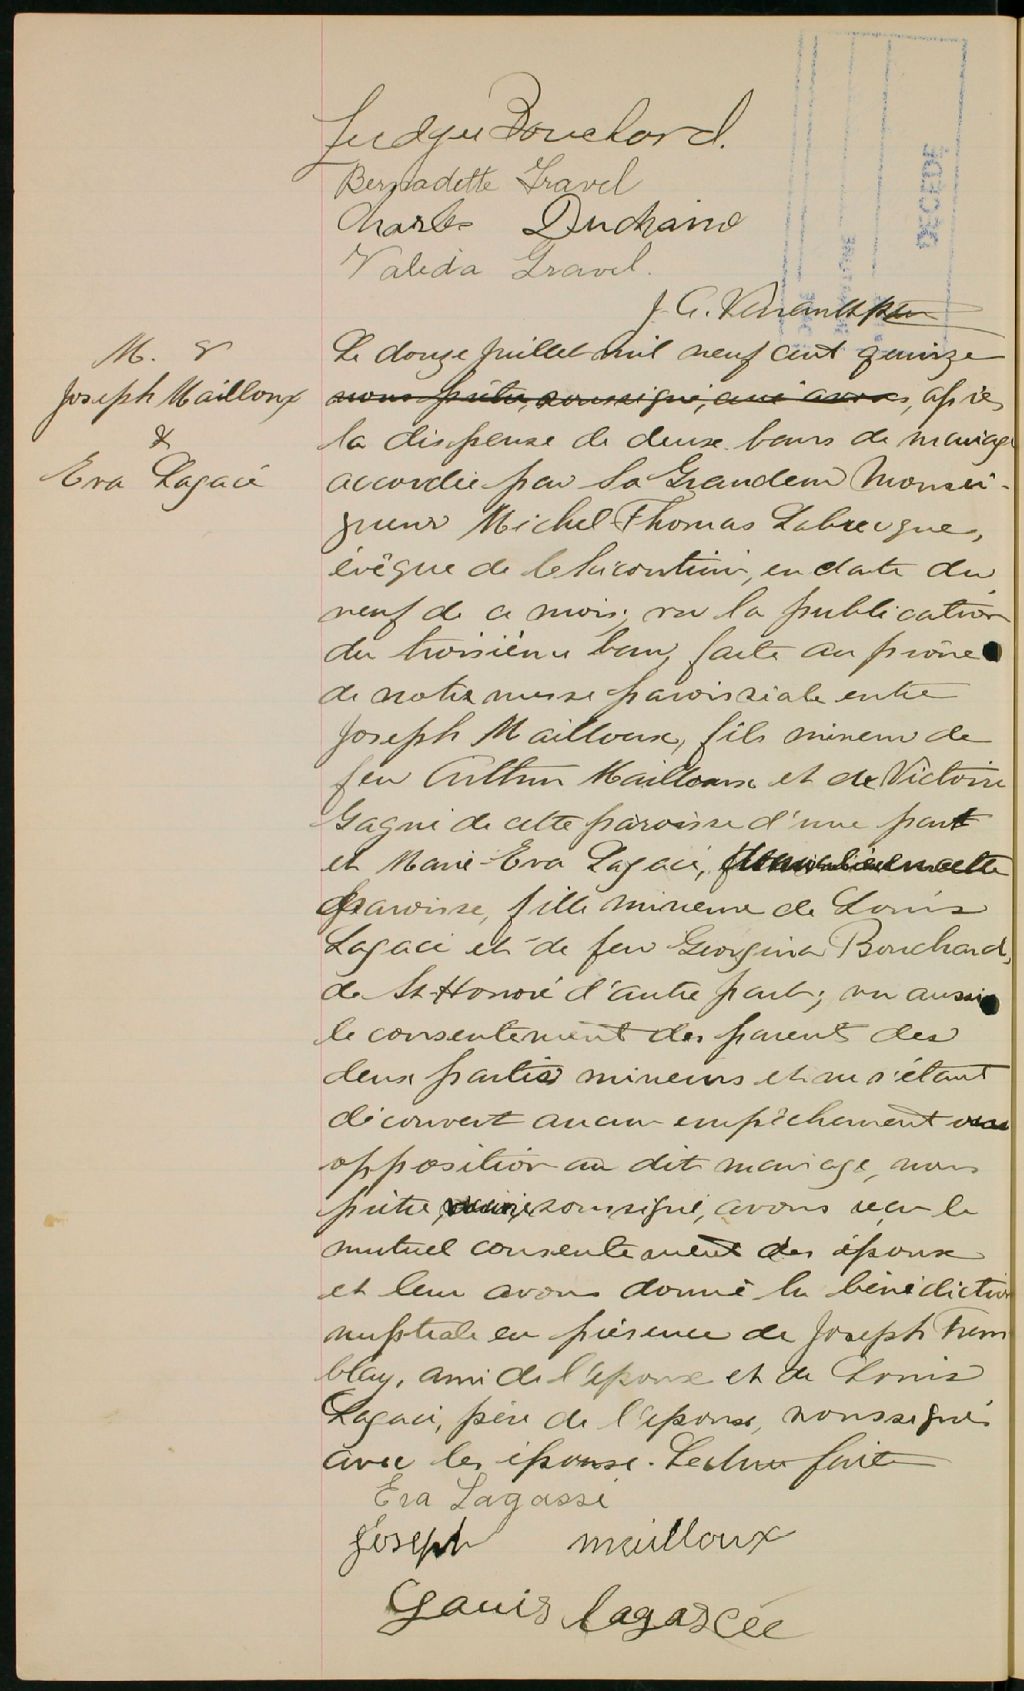 Judger Bouchard.
Bernadette Gravel
Charles Duchaine
Valeda Gravel.
DÉCÉDÉ
M. 8
Joseph Mailloux
&
Eva Lagacé
Le douze juillet mil neuf cent quinze
nous prêtre, soussigné, curé avons, après
la dispense de deux bans de mariage
accordée par Sa Grandeur Monsei-
gneur Michel Thomas Labrecque,
évêque de Chicoutimi, en date du
neuf de ce mois; vu la publication
du troisième ban, faite au prône
de notre messe paroissiale entre
Joseph Mailloux, fils mineur de
feu Arthur Mailloux et de Victoire
Gagné de cette paroisse d'une part
et Marie-Eva Lagacé,
paroisse, fille mineure de Louis
Lagacé et de feu Georgina Bouchard,
de St-Honoré d'autre part; vu aussi
le consentement des parents des
deux parties mineurs et ne s'étant
découvert aucun empêchement ou
opposition au dit mariage, nous
prêtre, soussigné, avons reçu le
mutuel consentement des époux
et leur avons donné la bénédiction
nuptiale en présence de Joseph Trem
blay, ami de l'époux et de Louis
Lagacé, père de l'épouse, soussignés
avec les époux. Lecture faite
Eva Lagassé
Joseph mailloux
Louis lagascée